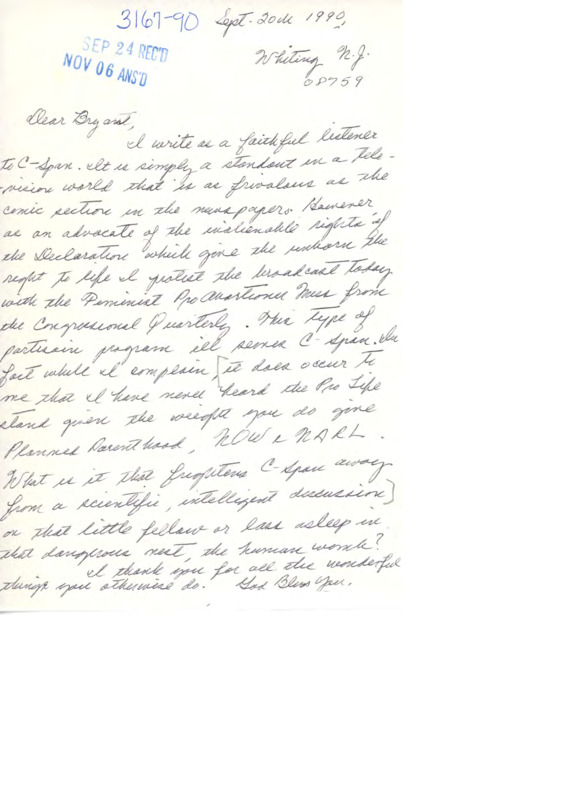 3167-90 Sept. 20th 1990,
SEP 24 REC'D
NOV 06 ANS'D
Whiting N.J.
08759
Dear Bryant,
I write as a faithful listener
to C-Span. It is simply a standout in a tele-
-vision world that is as frivalous as the
comic section in the newspapers. However
as an advocate of the inalienable rights of
the Declaration which give the unborn the
right to life I protest the broadcast today
with the Feminist Pro Abortionist Miss from
the Congressional Quarterly. This type of
partisain program ill serves C-Span. In
fact while I complain, [it does occur to
me that I have never heard the Pro Life
stand given the weight you do give
Planned Parenthood, NOW & NARL.
What is it that frightens C-Span away
from a scientific, intelligent discussion]
on that little fellow or lass asleep in
that dangerous nest, the human womb?
I thank you for all the wonderful
things you otherwise do. God Bless You.